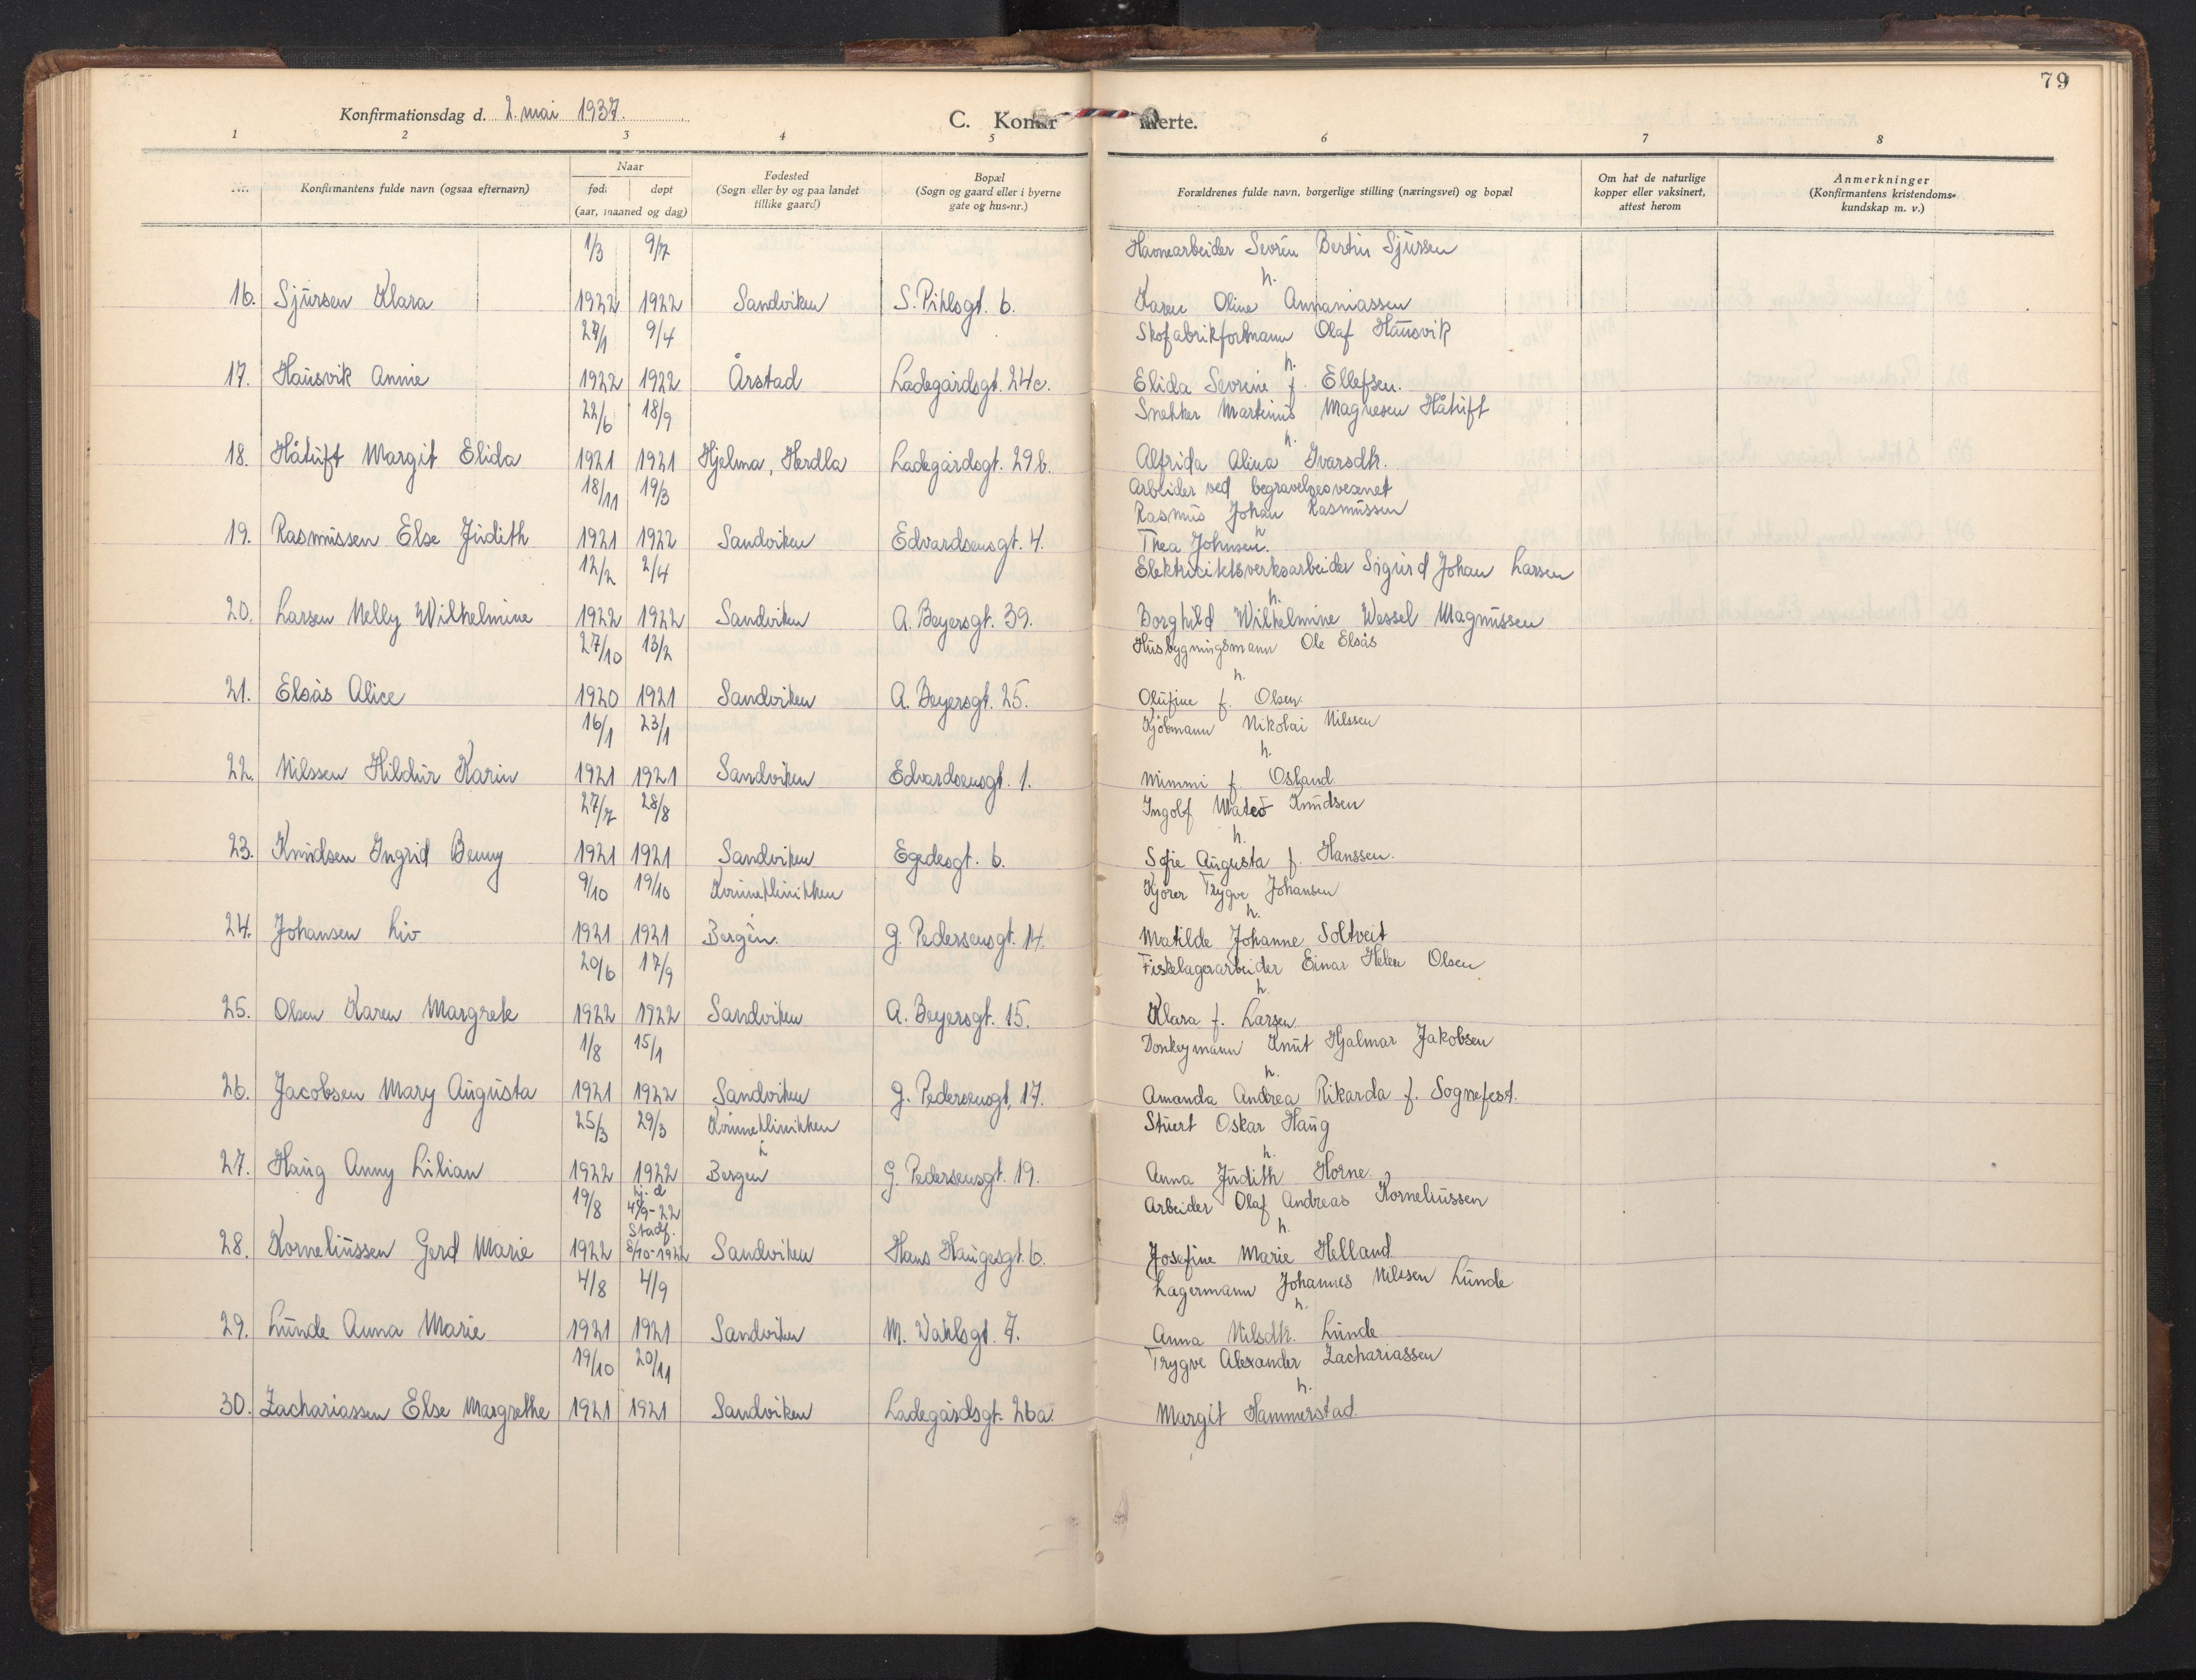 79
Konfirmationsdag d. 2. mai 1937.
C. Konfir merte.
1 2 3 4 5 6 7 8
Nr.
Konfirmantens fulde navn (ogsaa efternavn)
Naar
født døpt
(aar, maaned og dag)
Fødested
(Sogn eller by og paa landet
tillike gaard)
Bopæl
(Sogn og gaard eller i byerne
gate og hus-nr.)
Forældrenes fulde navn, borgerlige stilling (næringsvei) og bopæl
Om hat de naturlige
kopper eller vaksinert,
attest herom
Anmerkninger
(Konfirmantens kristendoms-
kundskap m. v.)
1/3 9/7 Havnearbeider Sevrin Bertin Sjursen
h.
16. Sjursen Klara 1922 1922 Sandviken S. Pihlsgt. 6. Karen Oline Annaniassen
27/1 9/4 Skofabrikformann Olaf Hausvik
h.
17. Hausvik Annie 1922 1922 Årstad Ladegårdsgt. 24c. Elida Sevrine f. Ellefsen.
22/6 18/9 Snekker Martinus Magnesen Håtuft
h.
18. Håtuft Margit Elida 1921 1921 Hjelma, Herdla Ladegårdsgt. 29b. Alfrida Alina Ivarsdtr.
18/11 19/3 Arbeider ved begravelsesvesenet
Rasmus Johan Rasmussen
h
19. Rasmussen Else Judith 1921 1922 Sandviken Edvardsensgt. 4. Thea Johnsen.
12/2 2/4 Elektricitetsverksarbeider Sigurd Johan Larsen
h.
20. Larsen Nelly Wilhelmine 1922 1922 Sandviken A. Beyersgt. 39. Borghild Wilhelmine Wessel Magnussen
27/10 13/2 Husbygningsmann Ole Elsås
h.
21. Elsås Alice 1920 1921 Sandviken A. Beyersgt. 25. Olufine f. Olsen.
16/1 23/1 Kjøbmann Nikolai Nilssen
h.
22. Nilssen Hildur Karin 1921 1921 Sandviken Edvardsensgt. 1. Mimmi f. Osland
27/7 28/8 Ingolf Mateo Knudsen
h.
23. Knudsen Ingrid Benny 1921 1921 Sandviken Egedesgt. 6. Sofie Augusta f. Hanssen.
9/10 19/10 Kvinneklinikken Kjører Trygve Johansen
h.
24. Johansen Liv 1921 1921 Bergen. G. Pedersensgt. 14. Matilde Johanne Soltveit
20/6 17/9 Fiskelagerarbeider Einar Helen Olsen
h.
25. Olsen Karen Margrete 1922 1922 Sandviken A. Beyersgt. 15. Klara f. Larsen
1/8 15/1 Donkeymann Knut Hjalmar Jakobsen
h.
26. Jacobsen Mary Augusta 1921 1922 Sandviken G. Pedersensgt. 17. Amanda Andrea Rikarda f. Sognefest.
25/3 29/3 Kvinneklinikken Stuert Oskar Haug
h.
27. Haug Anny Lilian 1922 1922 Bergen G. Pedersensgt. 19. Anna Judith Horne.
19/8 hj. d 4/9-22 Arbeider Olaf Andreas Korneliussen
Stadf. h.
28. Korneliussen Gerd Marie 1922 8/10-1922 Sandviken Hans Haugesgt. 6. Josefine Marie Helland
4/8 4/9 Lagermann Johannes Nilssen Lunde
h.
29. Lunde Anna Marie 1921 1921 Sandviken M. Wahlsgt. 7. Anna Nilsdtr. Lunde
19/10 20/11 Trygve Alexander Zachariassen
h.
30. Zachariassen Else Margrethe 1921 1921 Sandviken Ladegårdsgt. 26a. Margit Hammerstad.